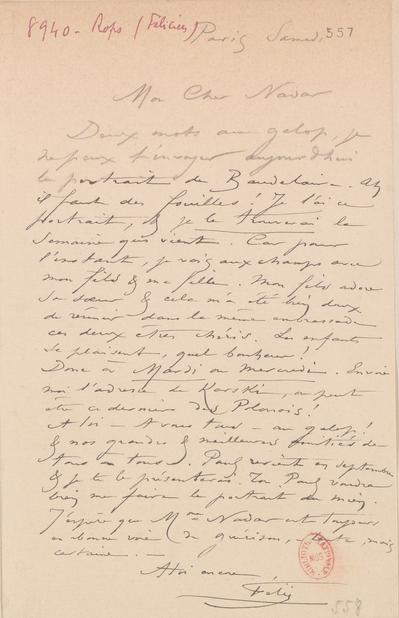 8940 - Rops (Félicien)
Paris Samedi
557
Mon Cher Nadar
Deux mots au galop, je
ne peux t'envoyer aujourd'hui
le portrait de Baudelaire. Ah
il faut des fouilles! Je l'ai ce
portrait, & je le trouverai la
semaine qui vient. Car pour
l'instant, je vais aux champs avec
mon fils & ma fille. Mon fils adore
sa sœur & cela m'a été bien doux
de réunir dans la même embrassade
ces deux êtres chéris. Les enfants
se plaisent, quel bonheur!
Donc à Mardi ou mercredi. Envoie
moi l'adresse de Karski, ou peut
être ce dernier des Polonais!
A toi - A vous tous - au galop!
& nos grandes & meilleures amitiés de
tous à tous. Paul revient en septembre
& je te le présenterai. Ton Paul voudra
bien me faire le portrait du mien.
J'espère que Mme Nadar est toujours
en bonne voie de guérison, lente, mais
certaine. -
A toi encore,
Fély
558